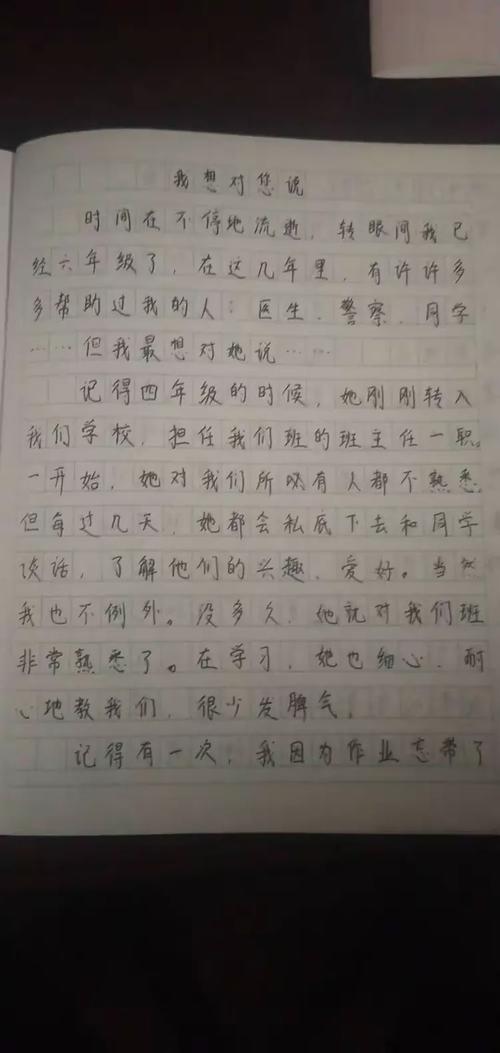 我想对您说
时间在不停地流逝，转眼间我已
经六年级了，在这几年里，有许许多
多帮助过我的人：医生、警察、同学
……但我最想对她说……
记得四年级的时候，她刚刚转入
我们学校，担任我们班的班主任一职。
一开始，她对我们所有人都不熟悉
但每过几天，她都会私底下去和同学
谈话，了解他们的兴趣、爱好。当然
我也不例外。没多久，她就对我们班
非常熟悉了。在学习，她也细心、耐
心地教我们，很少发脾气。
记得有一次，我因为作业忘带了